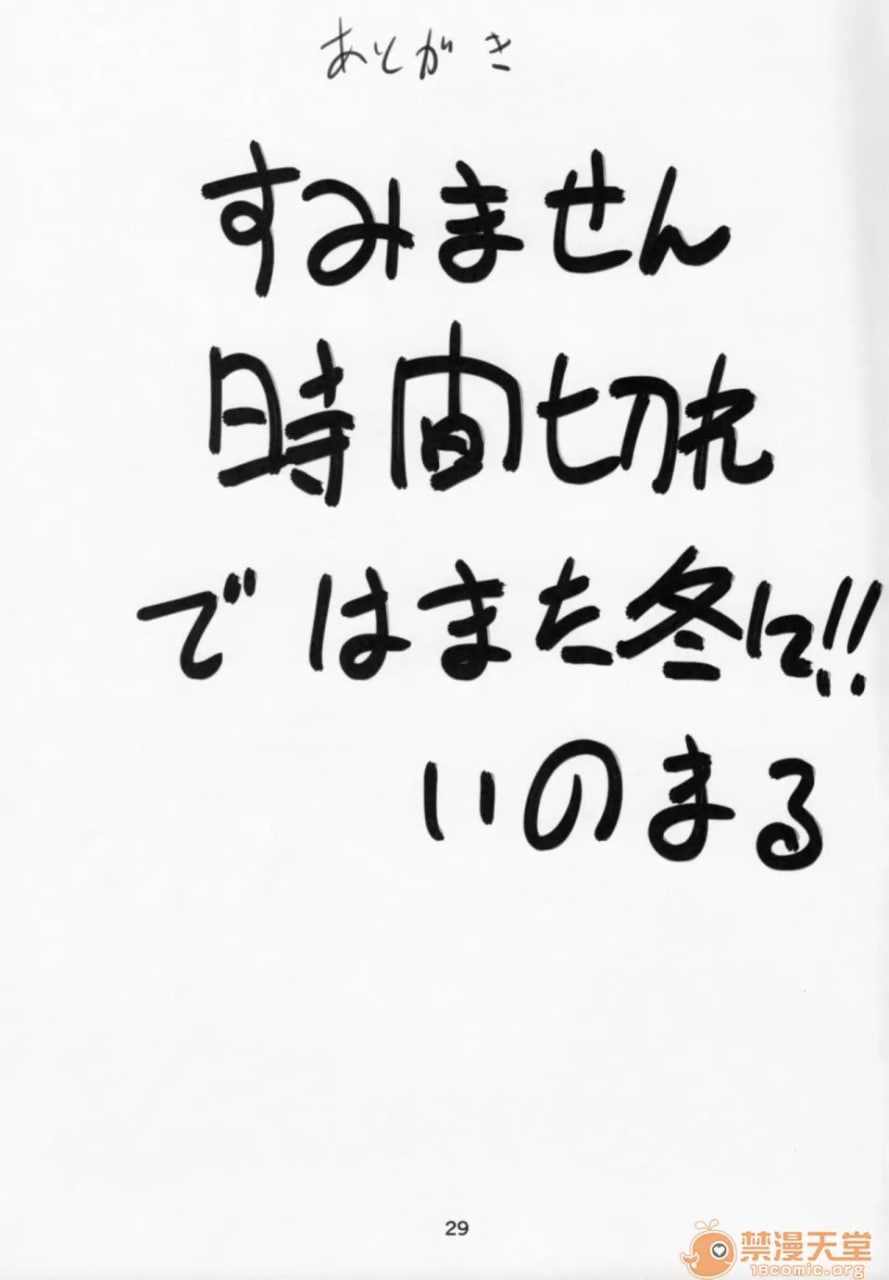 あとがき
すみません
時間切れ
ではまた冬に!!
いのまる
29
禁漫天堂
18comic.org